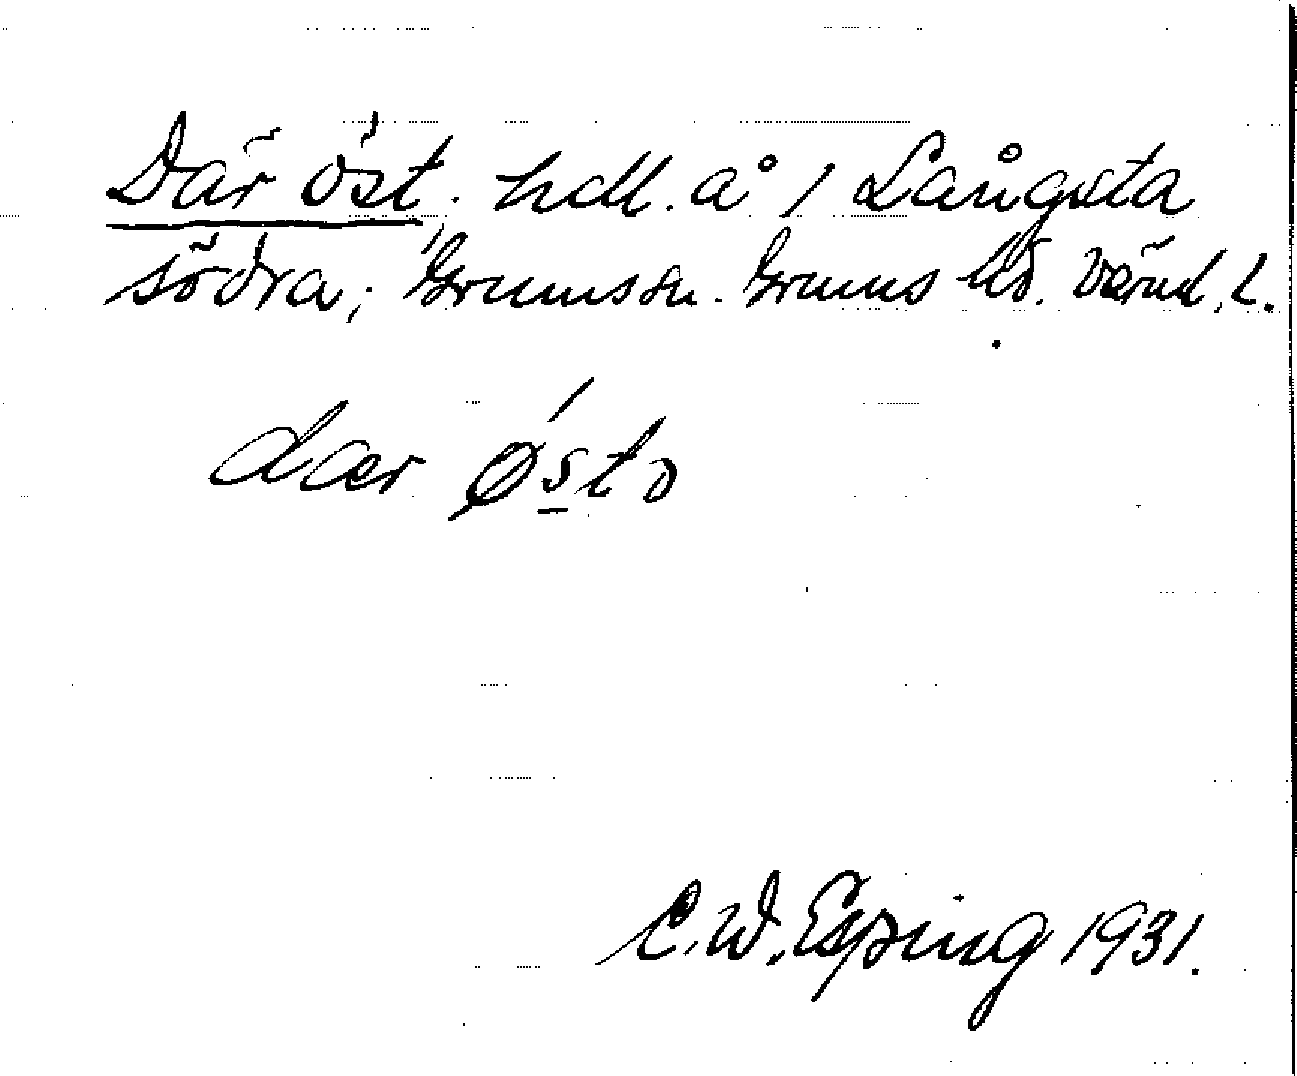 Där öst. hdl. å 1 Långsta
södra; Grumssn. Grums hd. Värml. L.
dær Østo
C. W. Esping 1931.